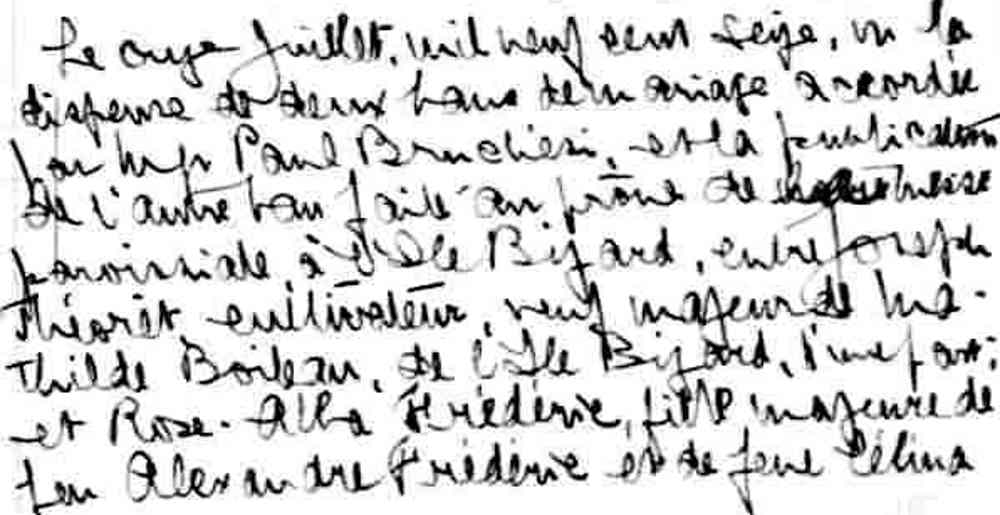 Le onze Juillet, mil neuf cent seize, vu la
dispense de deux bans de mariage accordée
par Mgr Paul Bruchési, et la publication
de l'autre ban faite au prône de
paroissiale, à l'Isle Bizard, entre Joseph
Théorêt, cultivateur, veuf majeur de Ma-
thilde Boileau, de l'Isle Bizard, d'une part;
et Rose-Alba Frédéric, fille majeure de
feu Alexandre Frédéric et de feue Célina